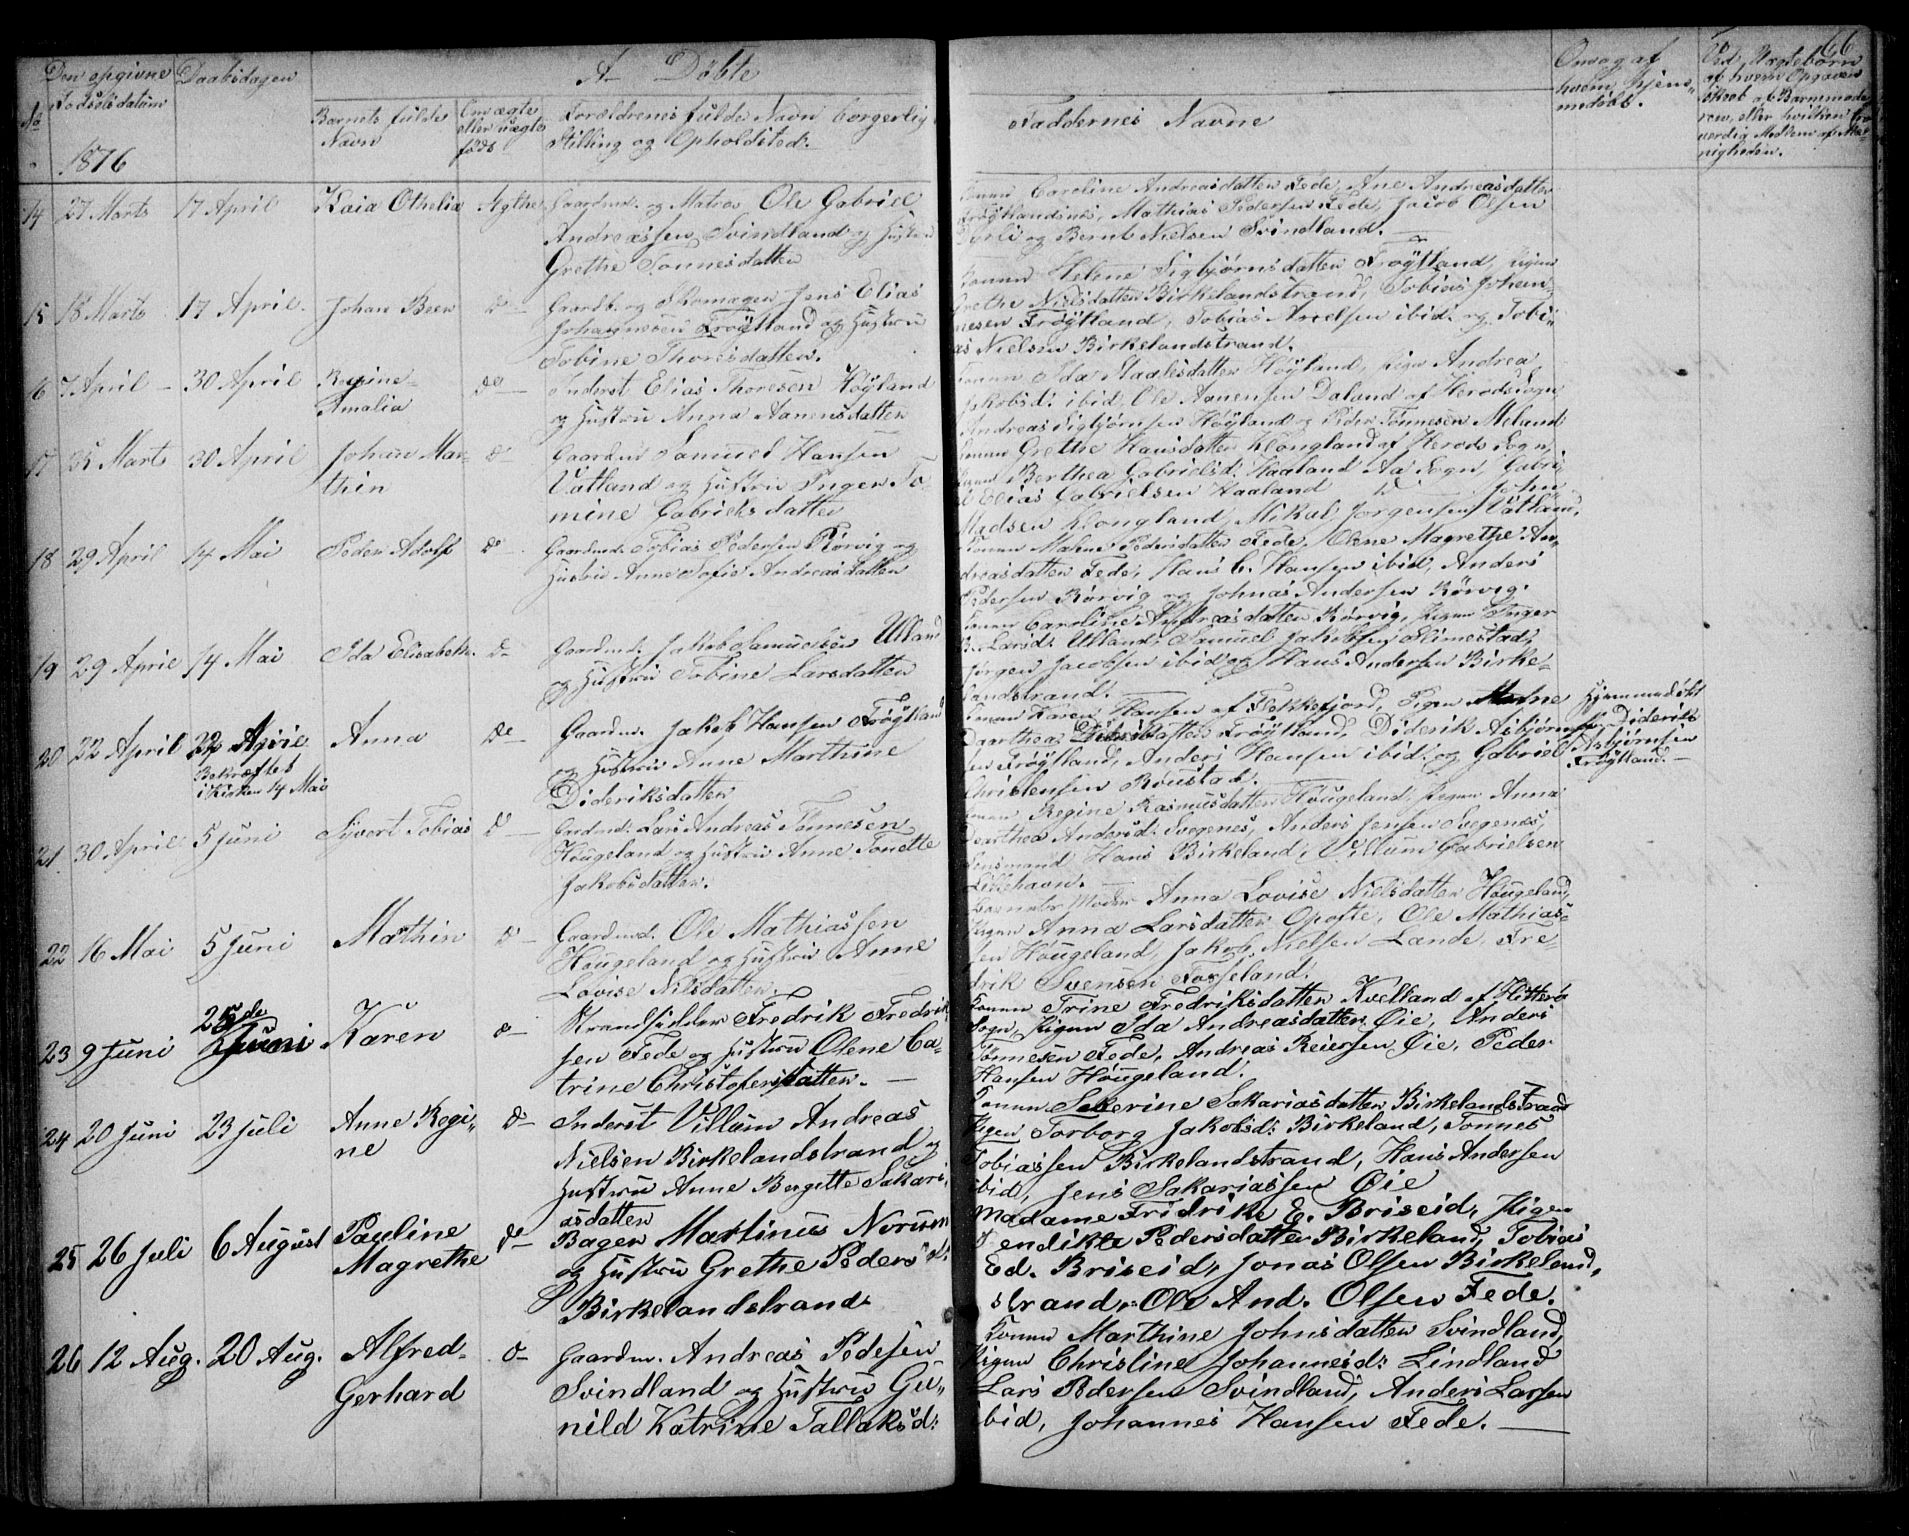 66
A Döbte
No
Den opgivne
Födselsdatum
1876
Daabsdagen
Barnets fulde
Navn
Om ægte
eller uægte
född
Forældrenes fulde Navn borgerlig
Stilling og Opholdsted.
Faddernes Navne
Om og af
hvem hjem-
medöbt.
Ved Uægtebørn
af hvem Opgaven
nigheden.
14 27 Marts 17 April Kaia Othelia Ægthe Gaardmd. og Matros Ole Gabriel
Andreassen Svindland og Hustru
Grethe Tonnesdatter
Konen Caroline Andreasdatter Fede, Ane Andreasdatter
Fröjtlandsnes, Mathias Pedersen Fede, Jacob Olsen
og Bernt Nielsen Svindland.
15 18 Marts 17 April. Johan Been do Gaardb. og Skomager Jens Elias
Johannesen Fröÿtland og Hustru
Tobine Thoresdatter.
Konen Helene Sigbjørnsdatter Fröÿtland, Pigen
Grethe Nielsdatter Birkelandstrand, Tobias Johan-
nesen Fröÿtland, Tobias Axelsen ibid. og Tobi-
as Nielsen Birkelandstrand.
16 7 April 30 April Regine
Amalia do Inderst Elias Thoresen Höÿland
og Hustru Anna Aanensdatter
Konen Ida Staalesdatter Höÿland, Pigen Andrea
Jakobsd: ibid, Ole Aanensen Daland af Herods Sogn,
Andreas Sigbjørnsen Höÿland og Peder Tönnesen Meland
17 25 Marts 30 April Johan Mar-
thin do Gaardm Samuel Hansen
Vatland og Hustru Inger To-
mine Gabrielsdatter
Konen Grethe Hansdatter Klongland af Herods Sogn,
Pigen Berthea Gabrielsd: Haaland Aa Sogn, Gabri-
el Elias Gabrielsen Haaland John
Madsen Klongland, Mikal Jørgensen Vatland.
18 29 April 14 Mai Peder Adolf do Gaardmd. Tobias Pedersen Rörvig og
Hustru Anne Sofie Andreasdatter
Konen Malene Pedersdatter Fede, Olene Magrethe An-
dreasdatter Fede, Hans C. Hansen ibid, Anders
Pedersen Rörvig og Johnas Andersen Rörvig.
19 29 April 14 Mai Ida Elisabeth. do Gaardmd. Jakob Samuelsen Ulland
og Hustru Tobine Larsdatter
Konen Caroline Andreasdatter Rörvig, Pigen Inger
B. Larsd: Ulland, Samuel Jakobsen Flimestad,
Jørgen Jacobsen ibid og Hans Andersen Birke-
landstrand.
20 22 April 22 April
Bekræftet
i Kirken 14 Mai Anna do Gaardm. Jakob Hansen Fröÿtland
og Hustru Anne Marthine
Dideriksdatter
Konen Karen Hansen af Flekkefjord, Pigen Malene
Daarthea Fröÿtland, Diderik Asbjörn-
sen Fröÿtland, Anders Hansen ibid. og Gabriel
Christensen Röustad.
Hjemmedöbt
af Diderik
Asbjørnsen
Fröÿtland.
21 30 April 5 Juni Syvert Tobias do Gardmd: Lars Andreas Tönnesen
Hougeland og Hustru Anne Tonette
Jakobsdatter.
Konen Regine Rasmusdatter Hougeland, Pigen Anna
Dorthea Andersd: Svegenes, Anders Jensen Svegenæs,
Lensmand Hans Birkeland, Villum Gabrielsen
Lillehavn.
22 16 Mai 5 Juni Mathin do Gaardmd. Ole Mathiassen
Hougeland og Hustru Anne
Lovise Nilsdatter.
Barnets Moder Anna Lovise Nielsdatter Hougeland,
Pigen Anna Larsdatter Opofte, Ole Mathias-
sen Hougeland, Jakob Nielsen Lande, Fre-
drik Svensen Fosseland.
23 9 Juni 25de
Juni Karen do Strandsidder Fredrik Fredrik
sen Fede og Hustru Olene Ca-
trine Christofersdatter.
Konen Trine Fredriksdatter Kvelland af Hitterö
Sogn, Pigen Ida Andreasdatter Øie, Anders
Tönnesen Fede, Andreas Reiersen Øie, Peder
Hansen Hougeland.
24 20 Juni 23 Juli Anne Regi-
ne do Inderst Villum Andreas
Nielsen Birkelandstrand og
Hustru Anne Bergette Sakari-
asdatter
Konen Severine Sakariasdatter Birkelandstrand
Pigen Torborg Jakobsd: Birkeland, Tonnes
Tobiassen Birkelandstrand, Hans Andersen
ibid, Jens Sakariassen Øie
25 26 Juli 6 August Pauline
Magrethe do Bager Martinus Norisen
og Hustru Grethe Pedersd:
Birkelandstrand.
Madame Fridrike E. Briseid, Pigen
Bendikte Pedersdatter Birkeland, Tobias
Ed. Briseid, Jonas Olsen Birkeland,
strand, Ole And. Olsen Fede.
26 12 Aug. 20 Aug. Alfred
Gerhard do Gaardm. Andreas Pedesen
Svindland og Hustru Gu-
nild Katrine Tallaksd:
Konen Marthine Johnsdatter Svindland,
Pigen Christine Johannesd: Lindland
Lars Pedersen Svindland, Anders Larsen
ibid, Johannes Hansen Fede.